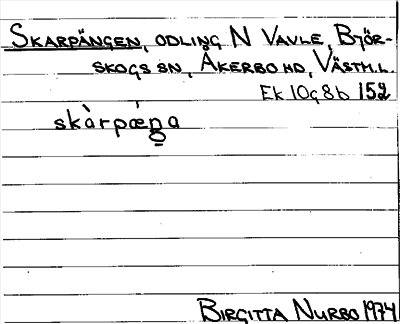 SKARPÄNGEN, ODLING N VAVLE, BJÖR-
SKOGS SN, ÅKERBO HD, VÄSTM.L.
EK 10G8b 152
skàrpæ̀ŋa
BIRGITTA NURBO 1974